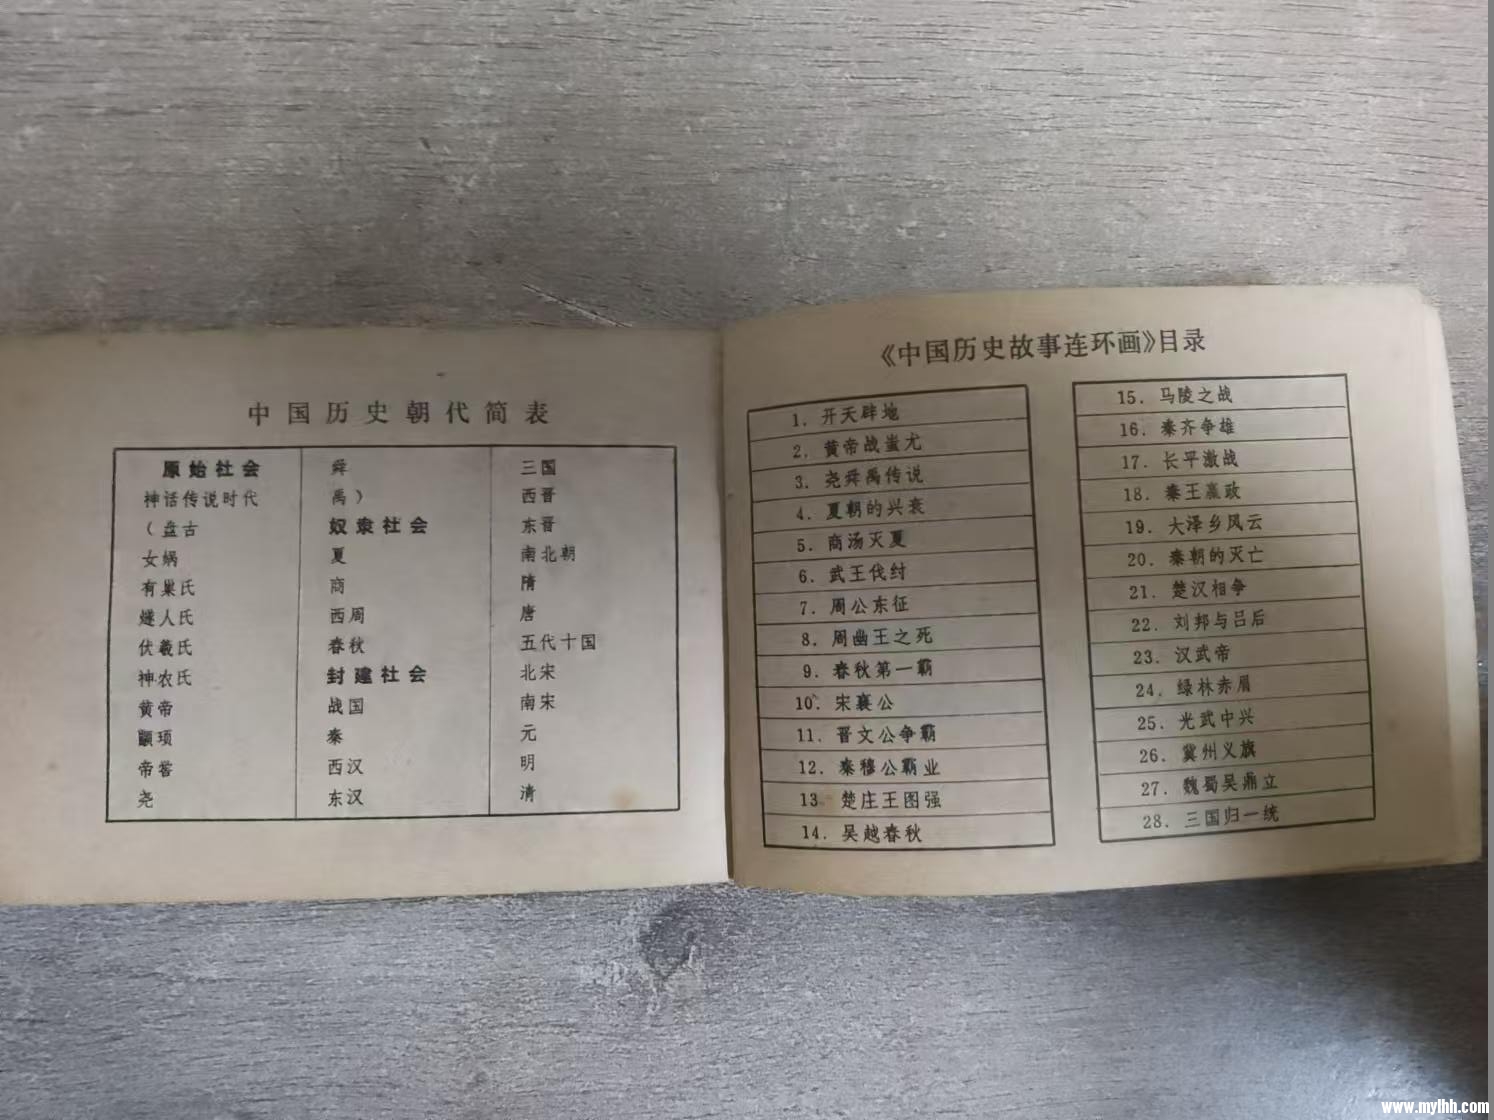 中国历史朝代简表
原始社会
神话传说时代
（盘古
女娲
有巢氏
燧人氏
伏羲氏
神农氏
黄帝
颛顼
帝喾
尧
舜
禹）
奴隶社会
夏
商
西周
春秋
封建社会
战国
秦
西汉
东汉
三国
西晋
东晋
南北朝
隋
唐
五代十国
北宋
南宋
元
明
清
《中国历史故事连环画》目录
1. 开天辟地
2. 黄帝战蚩尤
3. 尧舜禹传说
4. 夏朝的兴衰
5. 商汤灭夏
6. 武王伐纣
7. 周公东征
8. 周幽王之死
9. 春秋第一霸
10. 宋襄公
11. 晋文公争霸
12. 秦穆公霸业
13. 楚庄王图强
14. 吴越春秋
15. 马陵之战
16. 秦齐争雄
17. 长平激战
18. 秦王嬴政
19. 大泽乡风云
20. 秦朝的灭亡
21. 楚汉相争
22. 刘邦与吕后
23. 汉武帝
24. 绿林赤眉
25. 光武中兴
26. 冀州义旗
27. 魏蜀吴鼎立
28. 三国归一统
www.mylhh.com